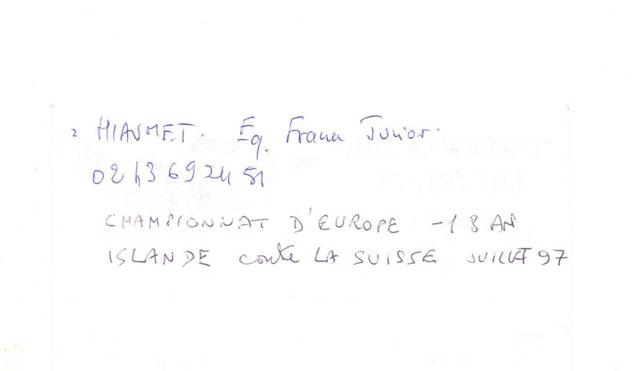 2 HIAUMET. Eq. France Junior.
02 43 69 24 51
CHAMPIONNAT D'EUROPE -18 AN
ISLANDE contre LA SUISSE JUILLET 97